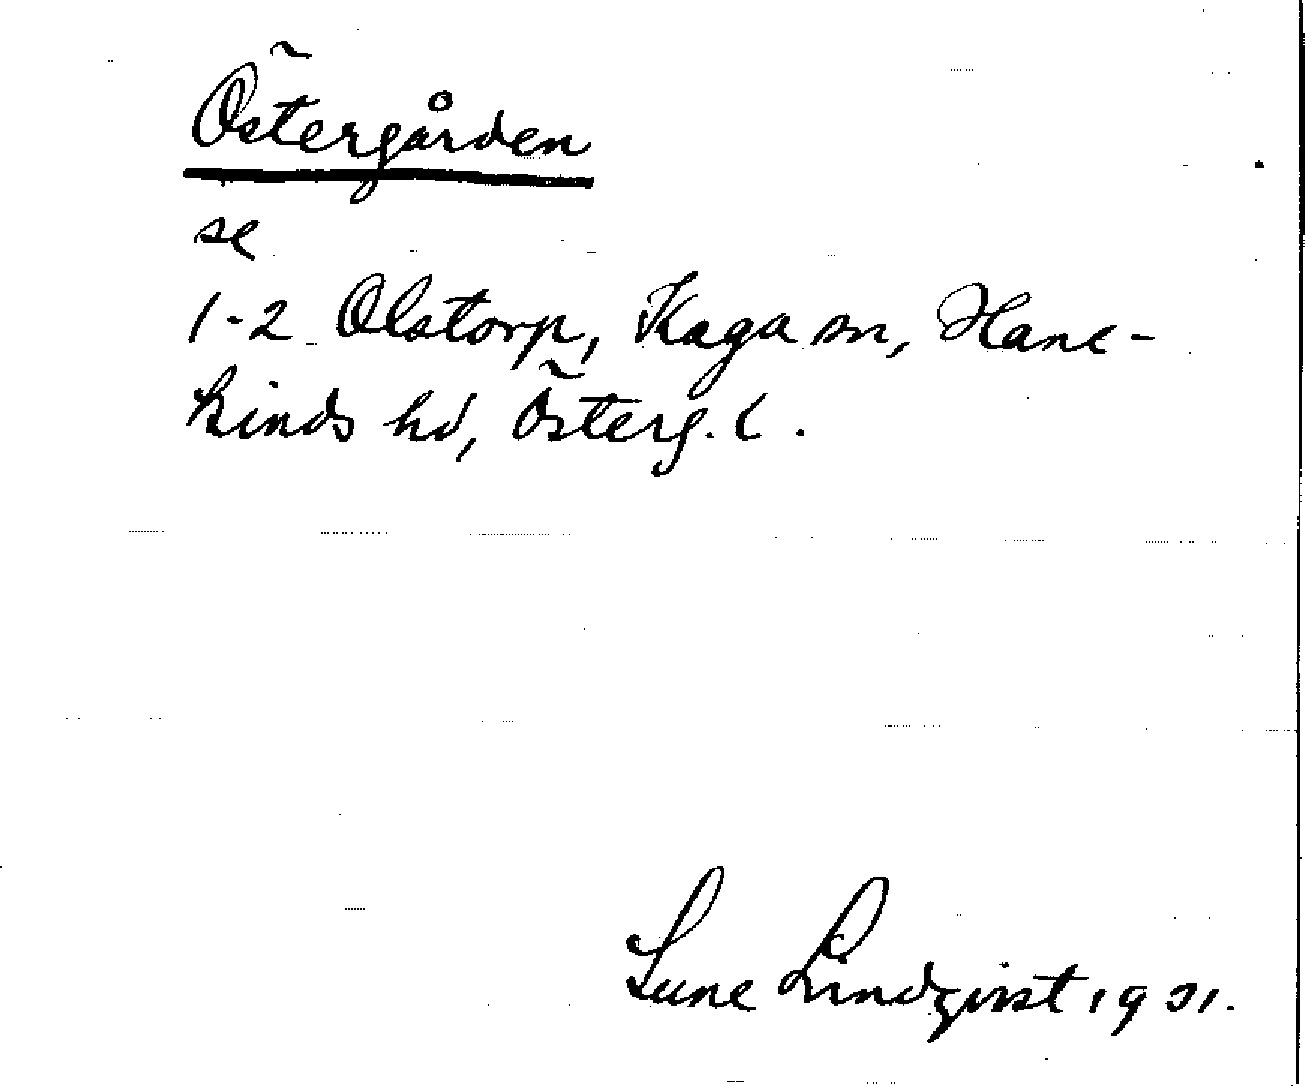 Östergården
se
1-2 Olstorp, Kaga sn, Hane-
kinds hd, Österg. l.
Sune Lindqvist 1931.